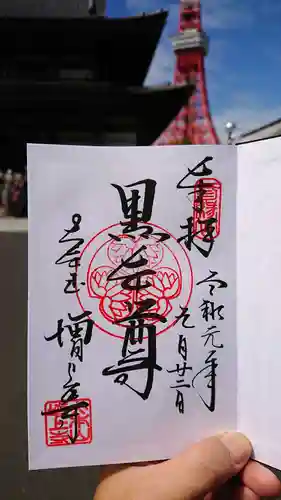 奉拝
令和元年
九月廿二日
黒本尊
大本山
増上寺